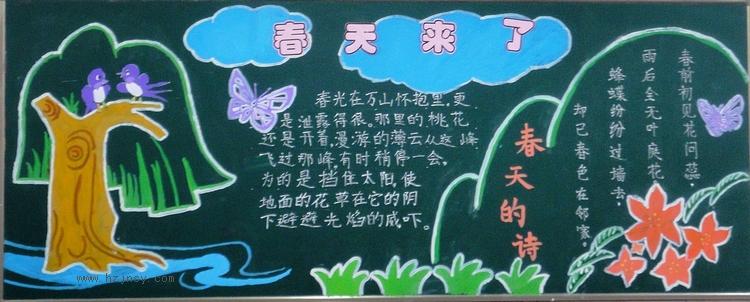 春天来了
春光在万山怀抱里,更
是泄露得很。那里的桃花
还是开着,漫游的薄云从这峰
飞过那峰,有时稍停一会。
为的是挡住太阳,使
地面的花草在它的阴
下避避光焰的威吓。
春天的诗
春前初见花问蕊,
雨后全无叶庭花
蜂蝶纷纷过墙去,
却已春色在邻家。